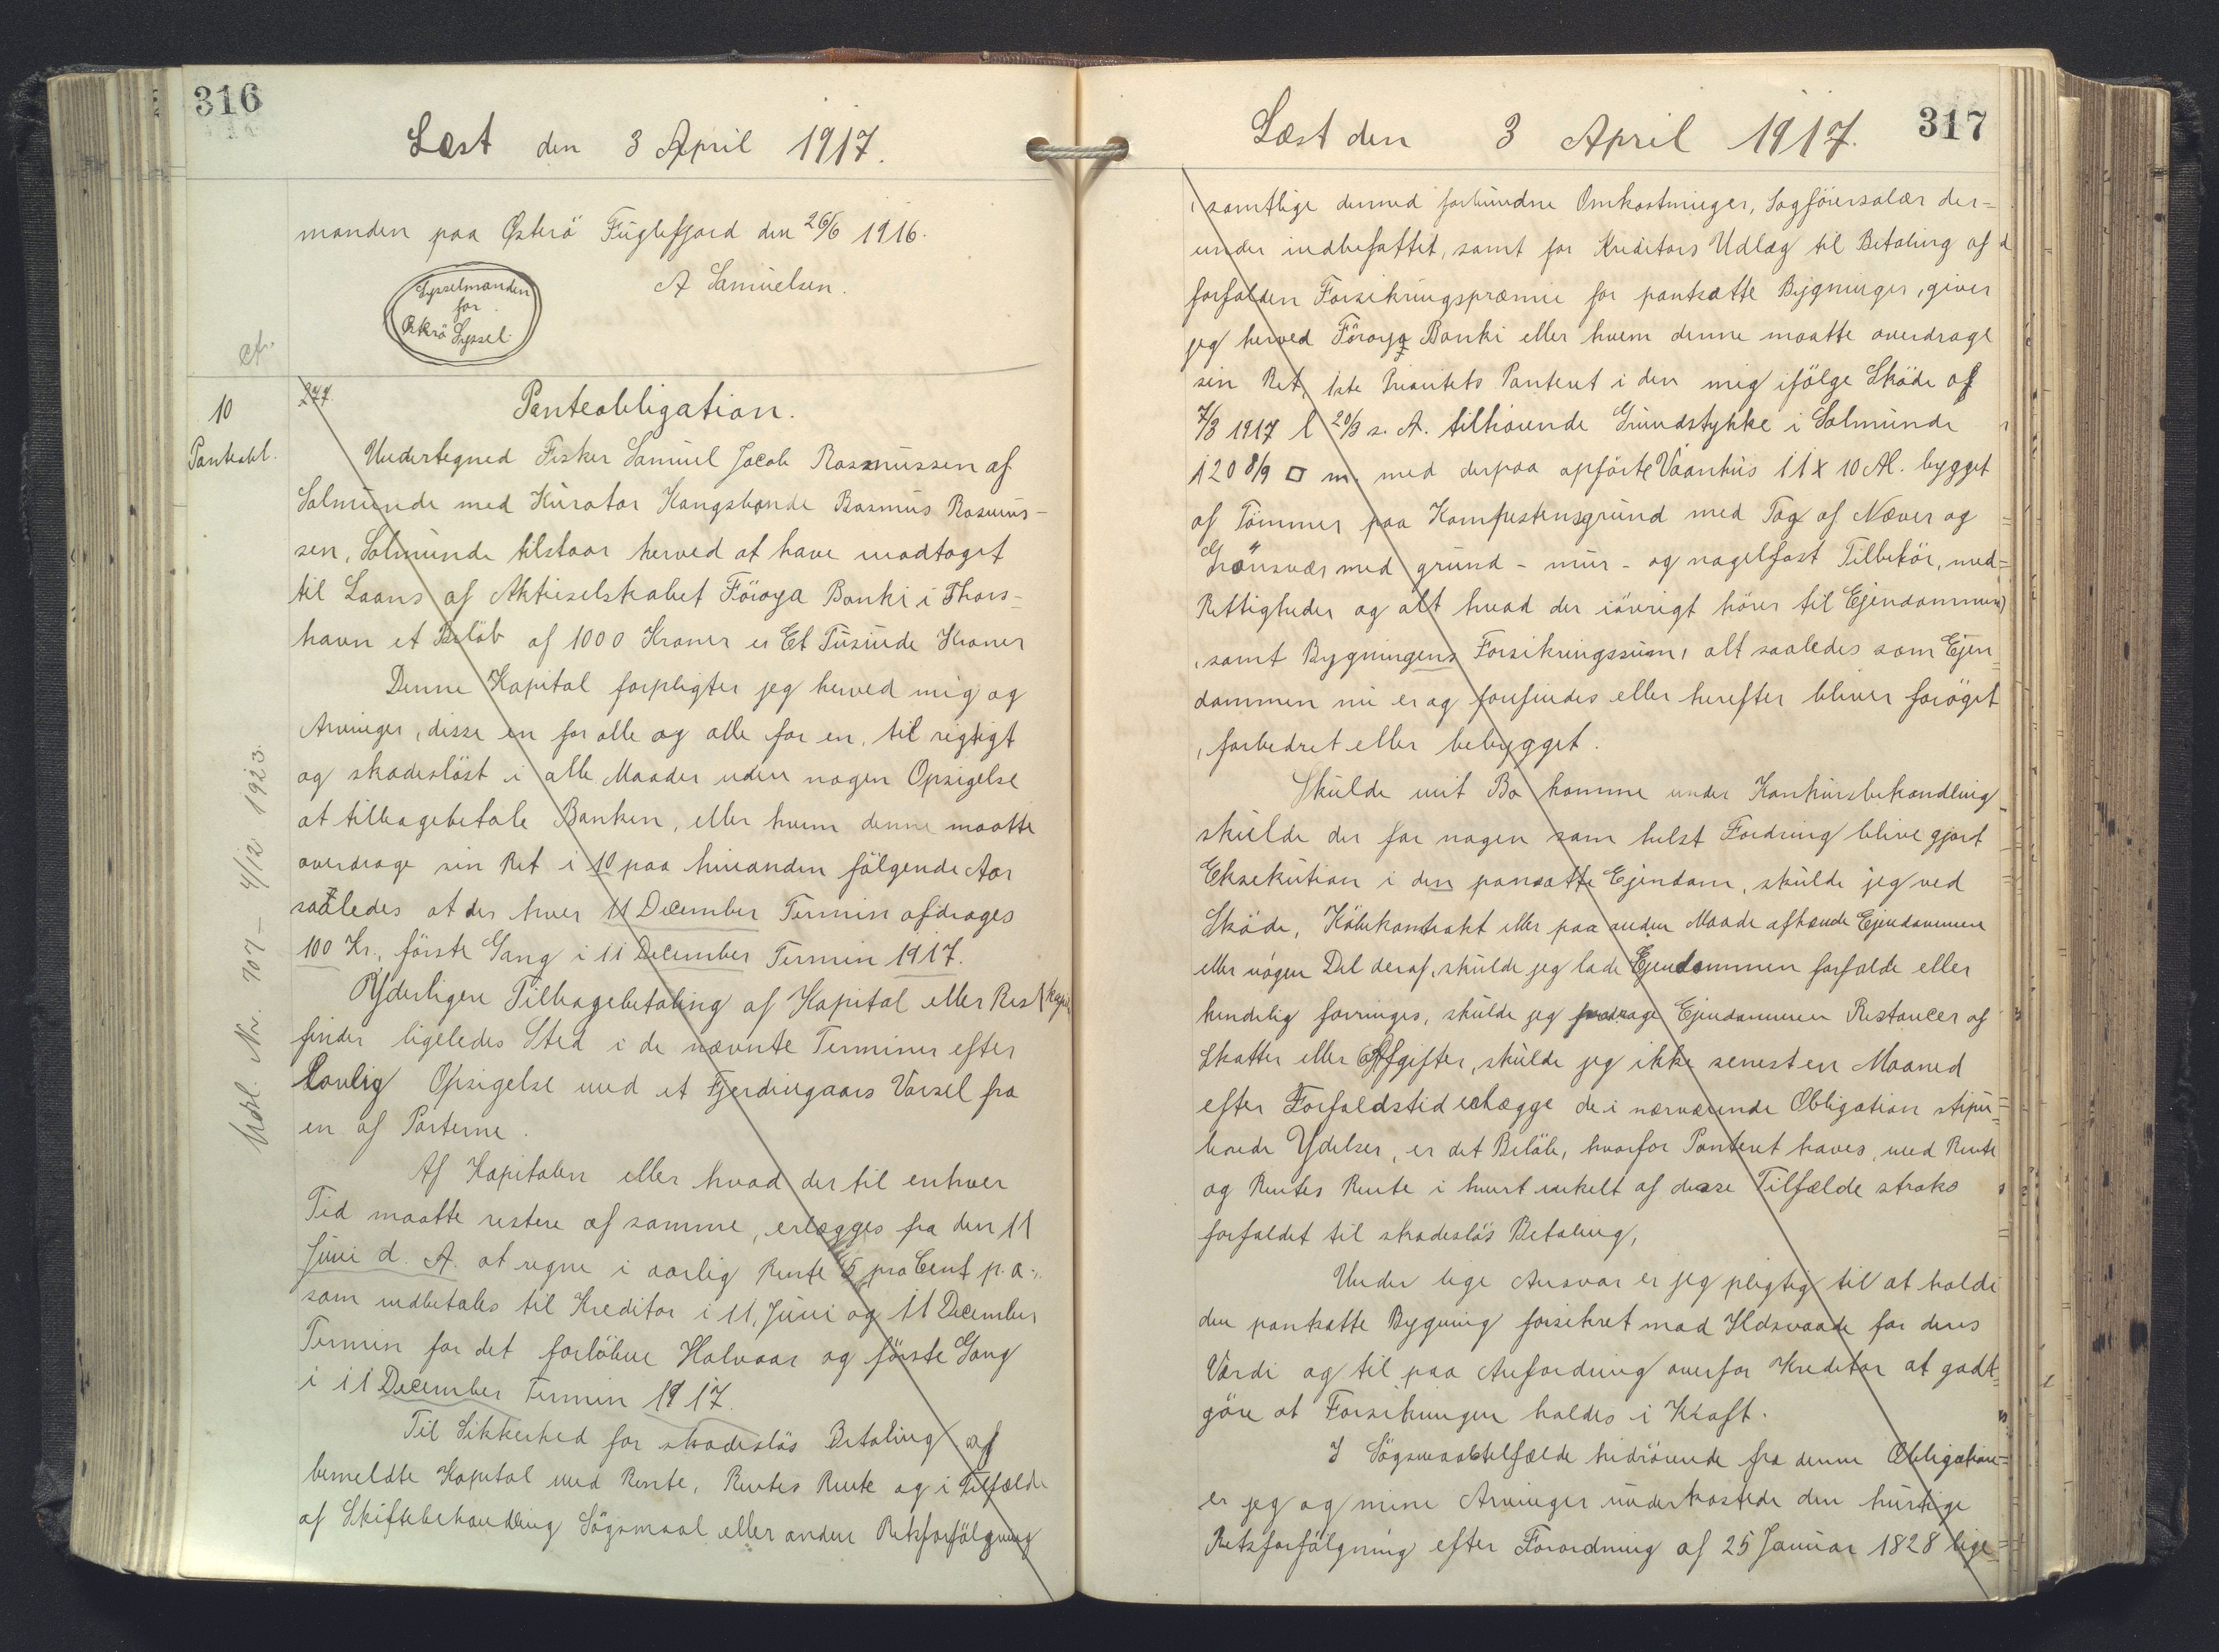 316
Læst den 3 April 1917.
manden paa Østerö Fuglefjord den 26/6 1916.
A Samuelsen.
Sysselmanden
for
Østerö Syssel.
10
Panteobl.
277.
Panteobligation.
Undertegned Fisker Samuel Jacob Rasmussen af
Solmunde med Kurator Kongsbonde Rasmus Rasmus-
sen, Solmunde tilstaar herved at have modtaget
til Laans af Aktieselskabet Föroya Banki i Thors-
havn et Beløb af 1000 Kroner er Et Tusinde Kroner
Denne Kapital forpligter jeg herved mig og
Arvinger, disse en for alle og alle for en, til rigtigt
og skadesløst i alle Maader uden nogen Opsigelse
at tilbagebetale Banken, eller hvem denne maatte
overdrage sin Ret i 10 paa hinanden fölgende Aar
saaledes at der hver 11 December Termin afdrages
100 Kr., förste Gang i 11 December Termin 1917.
Yderligere Tilbagebetaling af Kapital eller Restkapi
finder ligeledes Sted i de nævnte Terminer efter
Lovlig Opsigelse med et Fjerdingaars Varsel fra
en af Parterne.
Af Kapitalen eller hvad der til enhver
Tid maatte restere af samme, erlægges fra den 11
Juni d. A. at regne i aarlig Rente 5 pro Cent p.a.
som indbetales til Kreditor i 11, Juni og 11 December
Termin for det forløbne Halvaar og förste Gang
i 11 December Termin 1917.
Til Sikkerhed for skadesløs Betaling af
bemeldte Kapital med Rente, Rentes Rente og i Tilfælde
af Skiftebehandling Sögsmaal eller anden Retsforfölgning
Udsl. Nr. 707 – 4/12 1923.
317
Læst den 3 April 1917.
, samtlige dermed forbundne Omkostninger, Sagförersalær der=
under indbefattet, samt for Kreditors Udlæg til Betaling af
forfalden Forsikringspræmie for pantsatte Bygninger, giver
jeg herved Föroya Banki eller hvem denne maatte overdrage
sin Ret, 1ste Prioritets Panteret i den mig ifölge Sköde af
7/3 1917 l 20/3 s. A. tilhörende Grundstykke i Solmunde
120 8/9 □ m. med derpaa opförte Vaanhus 11 x 10 Al. bygget
af Tömmer paa Kampestensgrund med Tag af Næver og
Grönsvær med grund - mur - og nagelfast Tilbehör, med=
Rettigheder og alt hvad der iövrigt hörer til Ejendommen
, samt Bygningens Forsikringssum, alt saaledes som Ejen=
dommen nu er og forefindes eller herefter bliver foröget
, forbedret eller bebygget.
Skulde mit Bo komme under Konkursbehandling
skulde der for nogen som helst Fordring blive gjort
Eksekution i den pansatte Ejendom, skulde jeg ved
Sköde, Köbekontrakt eller paa anden Maade afhænde Ejendommen
eller nogen Del deraf, skulde jeg lade Ejendommen forfalde eller
kendelig forringes, skulde jeg paadrage Ejendommen Restancer af
Skatter eller Afgifter, skulde jeg ikke senest en Maaned
efter Forfaldstid erlægge de i nærværende Obligation stipu=
lerede Ydelser, er det Beløb, hvorfor Panteret haves, med Rente
og Rentes Rente i hvert enkelt af disse Tilfælde straks
forfaldet til skadesløs Betaling,
Under lige Ansvar er jeg pligtig til at holde
den pantsatte Bygning forsikret mod Ildsvaade for deres
Værdi og til paa Anfordring overfor Kreditor at godt=
göre at Forsikringen holdes i Kraft.
I Sögsmaalstilfælde hidrörende fra denne Obligation=
er jeg og mine Arvinger underkastede den hurtige
Retsforfölgning efter Forordning af 25 Januar 1828 lige=